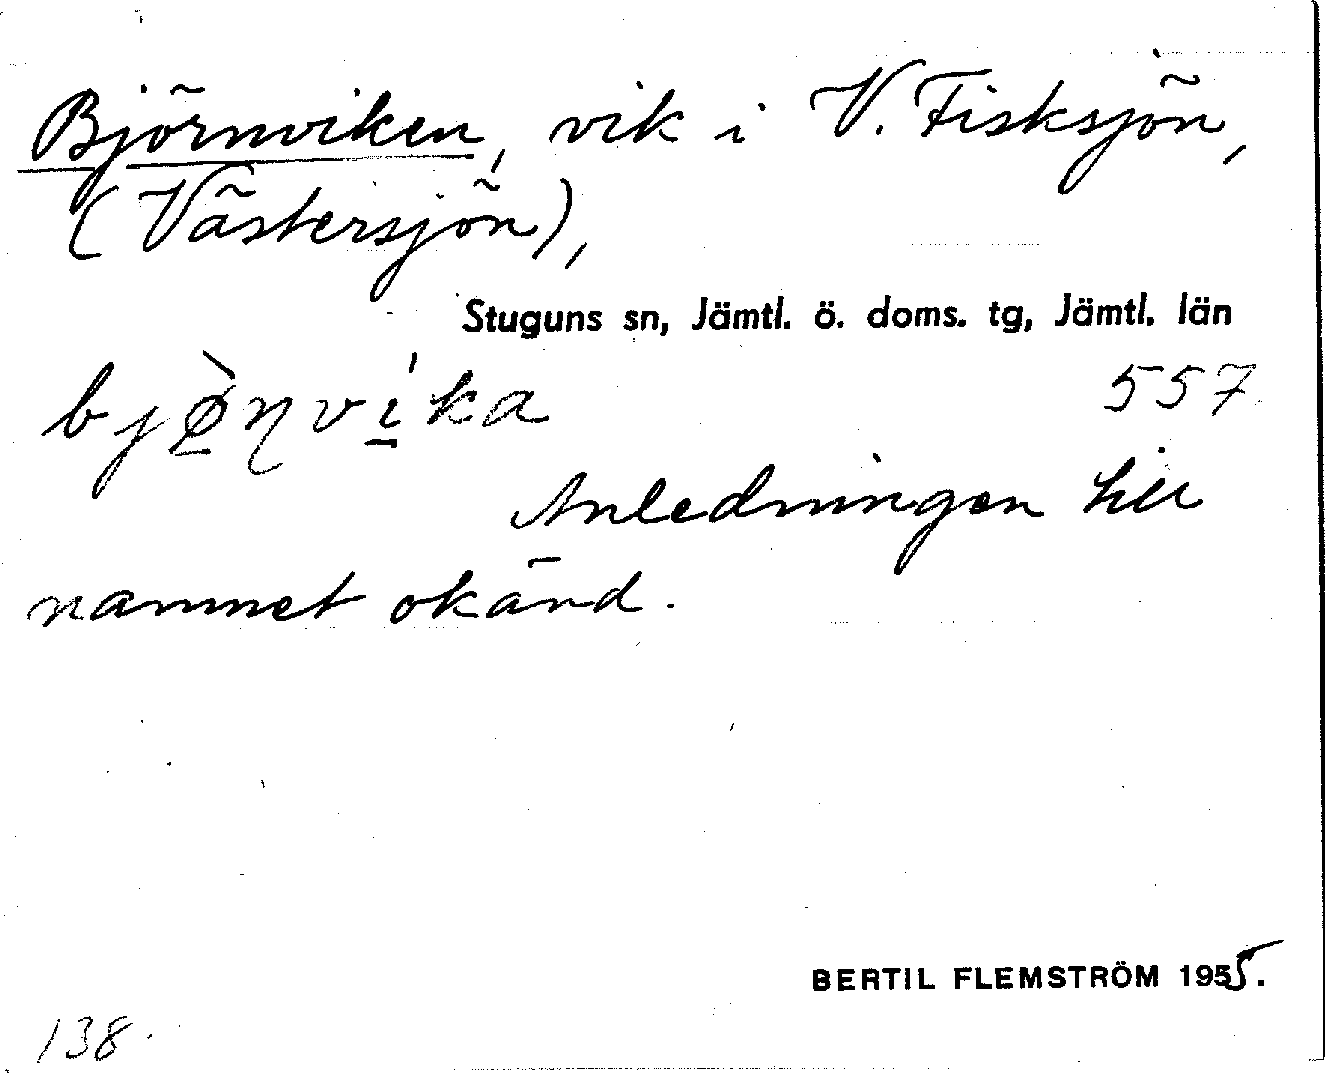 Björnviken, vik i V. Fisksjön,
(Västersjön),
Stuguns sn, Jämtl. ö. doms. tg, Jämtl. län
bjø̱̀ηví̱ka 557
Anledningen till
namnet okänd.
BERTIL FLEMSTRÖM 1955.
138.